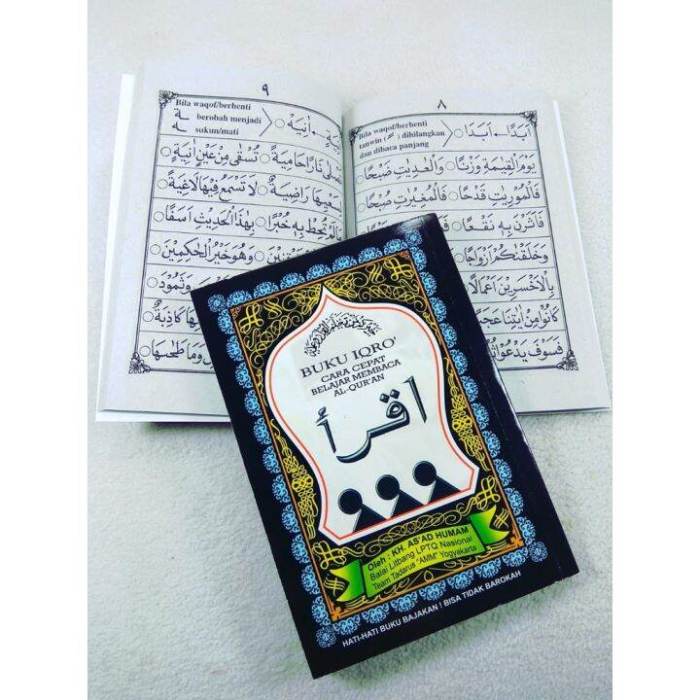 ٨
Bila waqof/berhenti
tanwin ( ً ) dihilangkan
dan dibaca panjang
أَبَدًا ـ أَبَدَا
يَوْمَ الْقِيٰمَةِ وَزْنًا ○ وَالْعٰدِيٰتِ ضَبْحًا
فَالْمُوْرِيٰتِ قَدْحًا ○ فَالْمُغِيْرٰتِ صُبْحًا
فَاَثَرْنَ بِهٖ نَقْعًا ○
وَخَلَقْنٰكُمْ اَزْوَاجًا ○
بِالْاَخْسَرِيْنَ اَعْمَالًا
كَانُوْا مِنْ اٰيٰتِنَا عَجَبًا
فَسَوْفَ يَدْعُوْا
٩
Bila waqof/berhenti
ـة berobah menjadi
ـه sukun/mati
اٰنِيَهْ
نَارًا حَامِيَةً ○ تُسْقٰى مِنْ عَيْنٍ اٰنِيَةٍ ○
رَاضِيَةٌ ○ لَا تَسْمَعُ فِيْهَا لَاغِيَةً ○
تُحِطْ بِهٖ خُبْرًا ○ بِهٰذَا الْحَدِيْثِ اَسَفًا ○
وَهُوَ خَيْرُ الْحٰكِمِيْنَ ○
وَثَمُوْدَ
كَاذِبَةٌ ○
وَمَا طَحٰهَا ○
BUKU IQRO'
CARA CEPAT
BELAJAR MEMBACA
AL-QUR'AN
اقرأ
Oleh : KH. AS'AD HUMAM
Balai Litbang LPTQ Nasional
Team Tadarus "AMM" Yogyakarta
HATI-HATI BUKU BAJAKAN ! BISA TIDAK BAROKAH